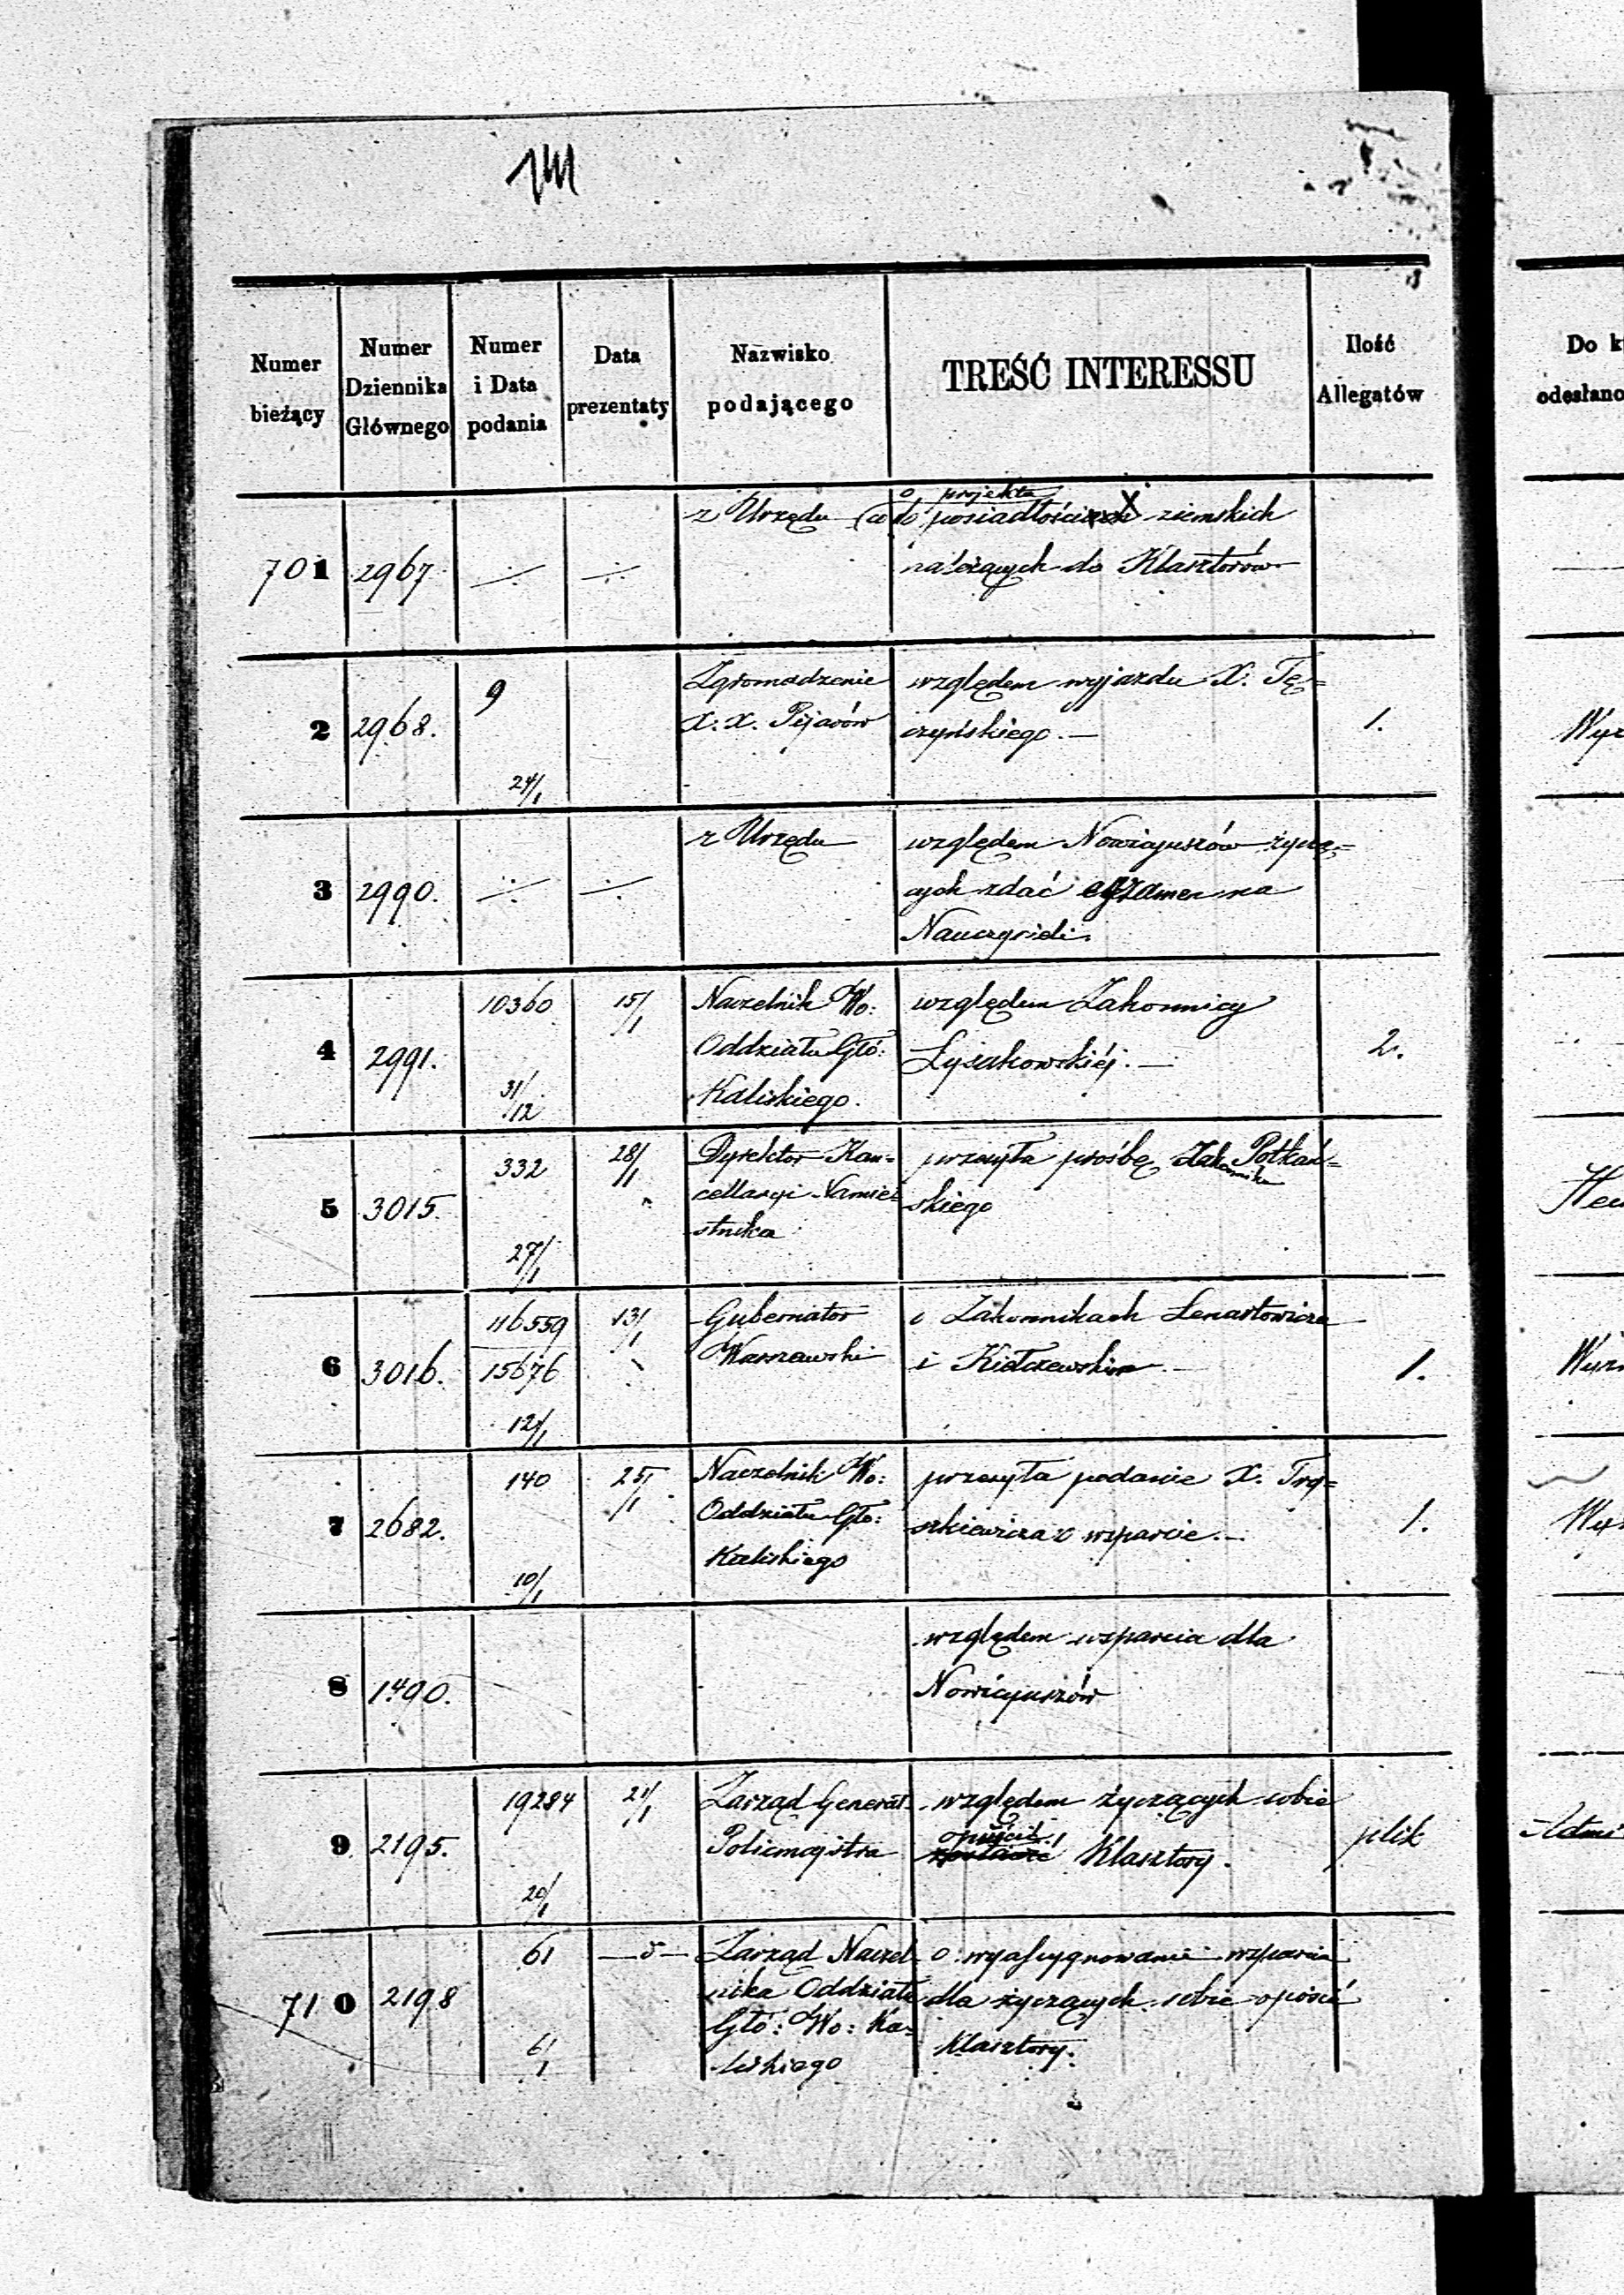 Numer bieżący
Numer Dziennika Głównego
Numer i Data podania
Data prezentaty
Nazwisko podającego
TREŚĆ INTERESSU
Ilość Allegatów
Do k
odesłano
701 2967 z Urzędu
o projekta
co do posiadłości ziemskich
należących do Klasztorów
2 2968. 9 24/1
Zgromadzenie
X. X. Pijarów
względem wyjazdu X. Tę=
czyńskiego. —
1.
Wyz
3 2990. z Urzędu
względem Nowicyuszów życzą=
cych zdać egzamen na
Nauczycieli.
4 2991. 10360 31/12 15/1
Naczelnik Wo:
Oddziału Głó:
Kaliskiego.
względem Zakonnicy
Łysakowskiéj. —
2.
5 3015. 332 27/1 28/1
Dyrektor Kan=
cellaryi Namie=
stnika
przesyła prośbę Zakonnika Potkań=
skiego
6 3016. 116559 15676 12/1 13/1
Gubernator
Warszawski
o Zakonnikach Lenartowicza
i Kiełczewskim —
1.
7 2682. 140 10/1 25/1
Naczelnik Wo:
Oddziału Głó:
Kaliskiego
przesyła podanie X. Try=
szkiewicza o wsparcie. —
1.
8 1490.
względem wsparcia dla
Nowicyuszów
9 2195. 19284 20/1 21/1
Zarząd Generał
Policmajstra
względem życzących sobie
opuścić
Klasztory.
plik
710 2198 61 6/1
Zarząd Naczel
nika Oddziału
Głó: Wo: Ka=
liskiego
o wyassygnowanie wsparcia
dla życzących sobie opuścić
Klasztory.